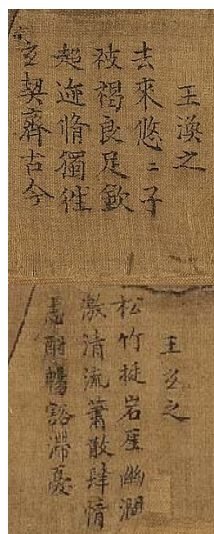 王渙之
去來悠〻子
被褐良足欽
超迹脩獨往
玄契齊古今
王玄之
松竹挺岩崖幽澗
激清流蕭散肆情
志酣暢豁滯憂